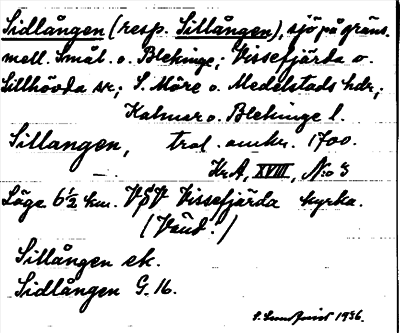 Sidlången (resp. Sillången), sjö på gräns.
mell. Smål. o. Blekinge; Vissefjärda o.
Sillhövda sn; S. Möre o. Medelstads hdr;
Kalmar o. Blekinge l.
Sillangen, trol. omkr. 1700.
KrA, XVIII, No 3
Läge 6½ km. VSV Vissefjärda kyrka.
(Vänd!)
Sillången ek.
Sidlången G. 16.
1936.